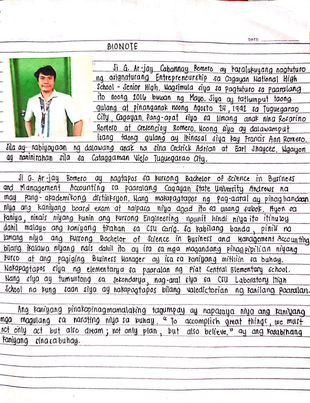 DATE
BIONOTE
Si G. Ar-jay Cabannay Romero ay kasalukuyang nagtuturo
ng asignaturang Entrepreneurship sa Cagayan National High
School - Senior High. Nagsimula siya sa pagtuturo sa paaralang
ito noong 2016 buwan ng Mayo. Siya ay tatlumput taong
gulang at pinanganak noong Agosto 28, 1991 sa Tuguegarao
City, Cagayan. Pang-apat siya sa limang anak nina Rosarino
Romero at Romero. Noong siya ay dalawampat
taong gulang ay ikinasal siya kay Francis Ann Romero.
Sila ay nabiyayaan ng dalawang anak na sina Cedrick Adrian at Earl Jhaycee. Ngayon
ay naninirahan sila sa Cataggaman Viejo Tuguegarao City.
Si G. Ar-jay Romero ay nagtapos sa kursong Bachelor of Science in Business
and Management Accounting sa paaralang Cagayan State University Andrews na
may pang-akademikong distinksyon. Nang makapagtapos ng pag-aaral ay pinaghandaan
niya ang kaniyang board exam at naipasa niya agad ito sa unang subok. Ayon sa
kaniya, hindi niyang kunin ang kursong Engineering ngunit hindi niya ito itinuloy
dahil malayo ang kaniyang tirahan sa CSU Carig. Sa kabilang banda, pinili na
lamang niya ang kursong Bachelor of Science in Business and Management Accounting
bilang niyang nais dahil ito ay isa sa mga magandang pinagpipilian niyang
kurso at ang pagiging Business Manager ay isa sa kaniyang mithiin sa buhay.
Nakapagtapos siya ng elementarya sa paaralan ng Piat Central Elementary school.
Nang siya ay tumuntong sa sekondarya, nag-aral siya sa CSU Laboratory High
School na kung saan siya ay nakapagtapos bilang valedictorian ng kanilang paaralan.
Ang kaniyang pinakapinagmamalaking tagumpay ay napasaya niya ang kaniyang
mga magulang sa narating niya sa buhay. "To accomplish great things, we must
not only act but also dream; not only plan, but also believe," ay ang kasabihang
kaniyang isinasabuhay.